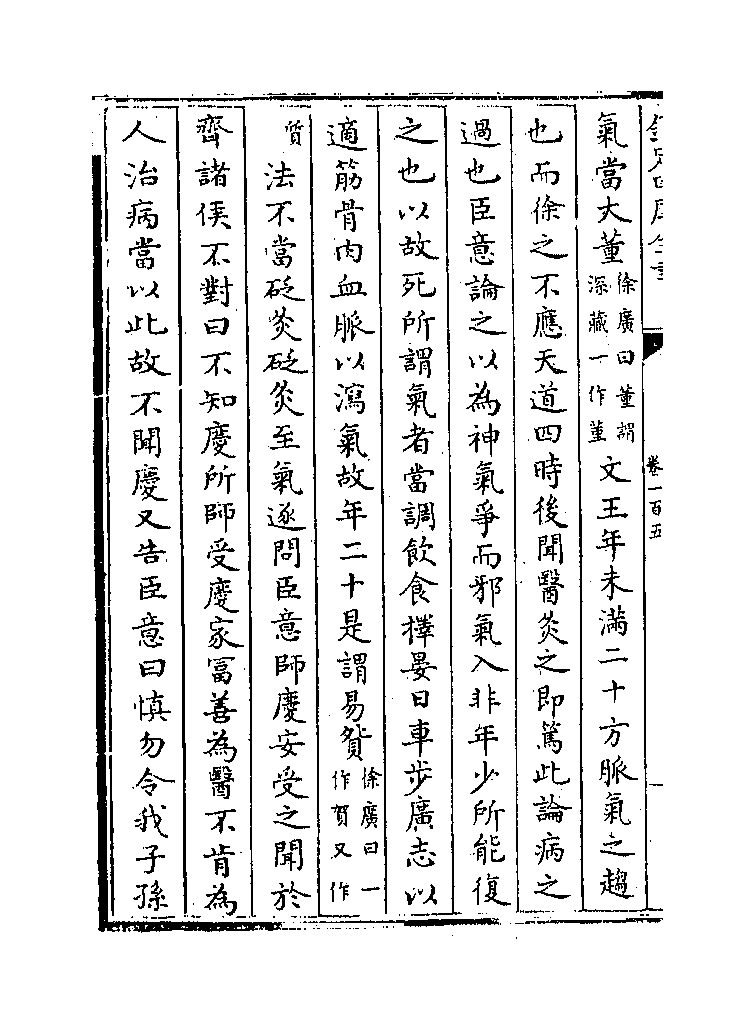 欽定四庫全書 卷一百五
氣當大董徐廣曰董謂深藏一作堇文王年未滿二十方脈氣之趨
也而徐之不應天道四時後聞醫灸之即篤此論病之
過也臣意論之以為神氣爭而邪氣入非年少所能復
之也以故死所謂氣者當調飲食擇晏日車步廣志以
適筋骨肉血脈以瀉氣故年二十是謂易䝿徐廣曰一作賀又作
質法不當砭灸砭灸至氣逐問臣意師慶安受之聞於
齊諸侯不對曰不知慶所師受慶家富善為醫不肯為
人治病當以此故不聞慶又告臣意曰慎勿令我子孫